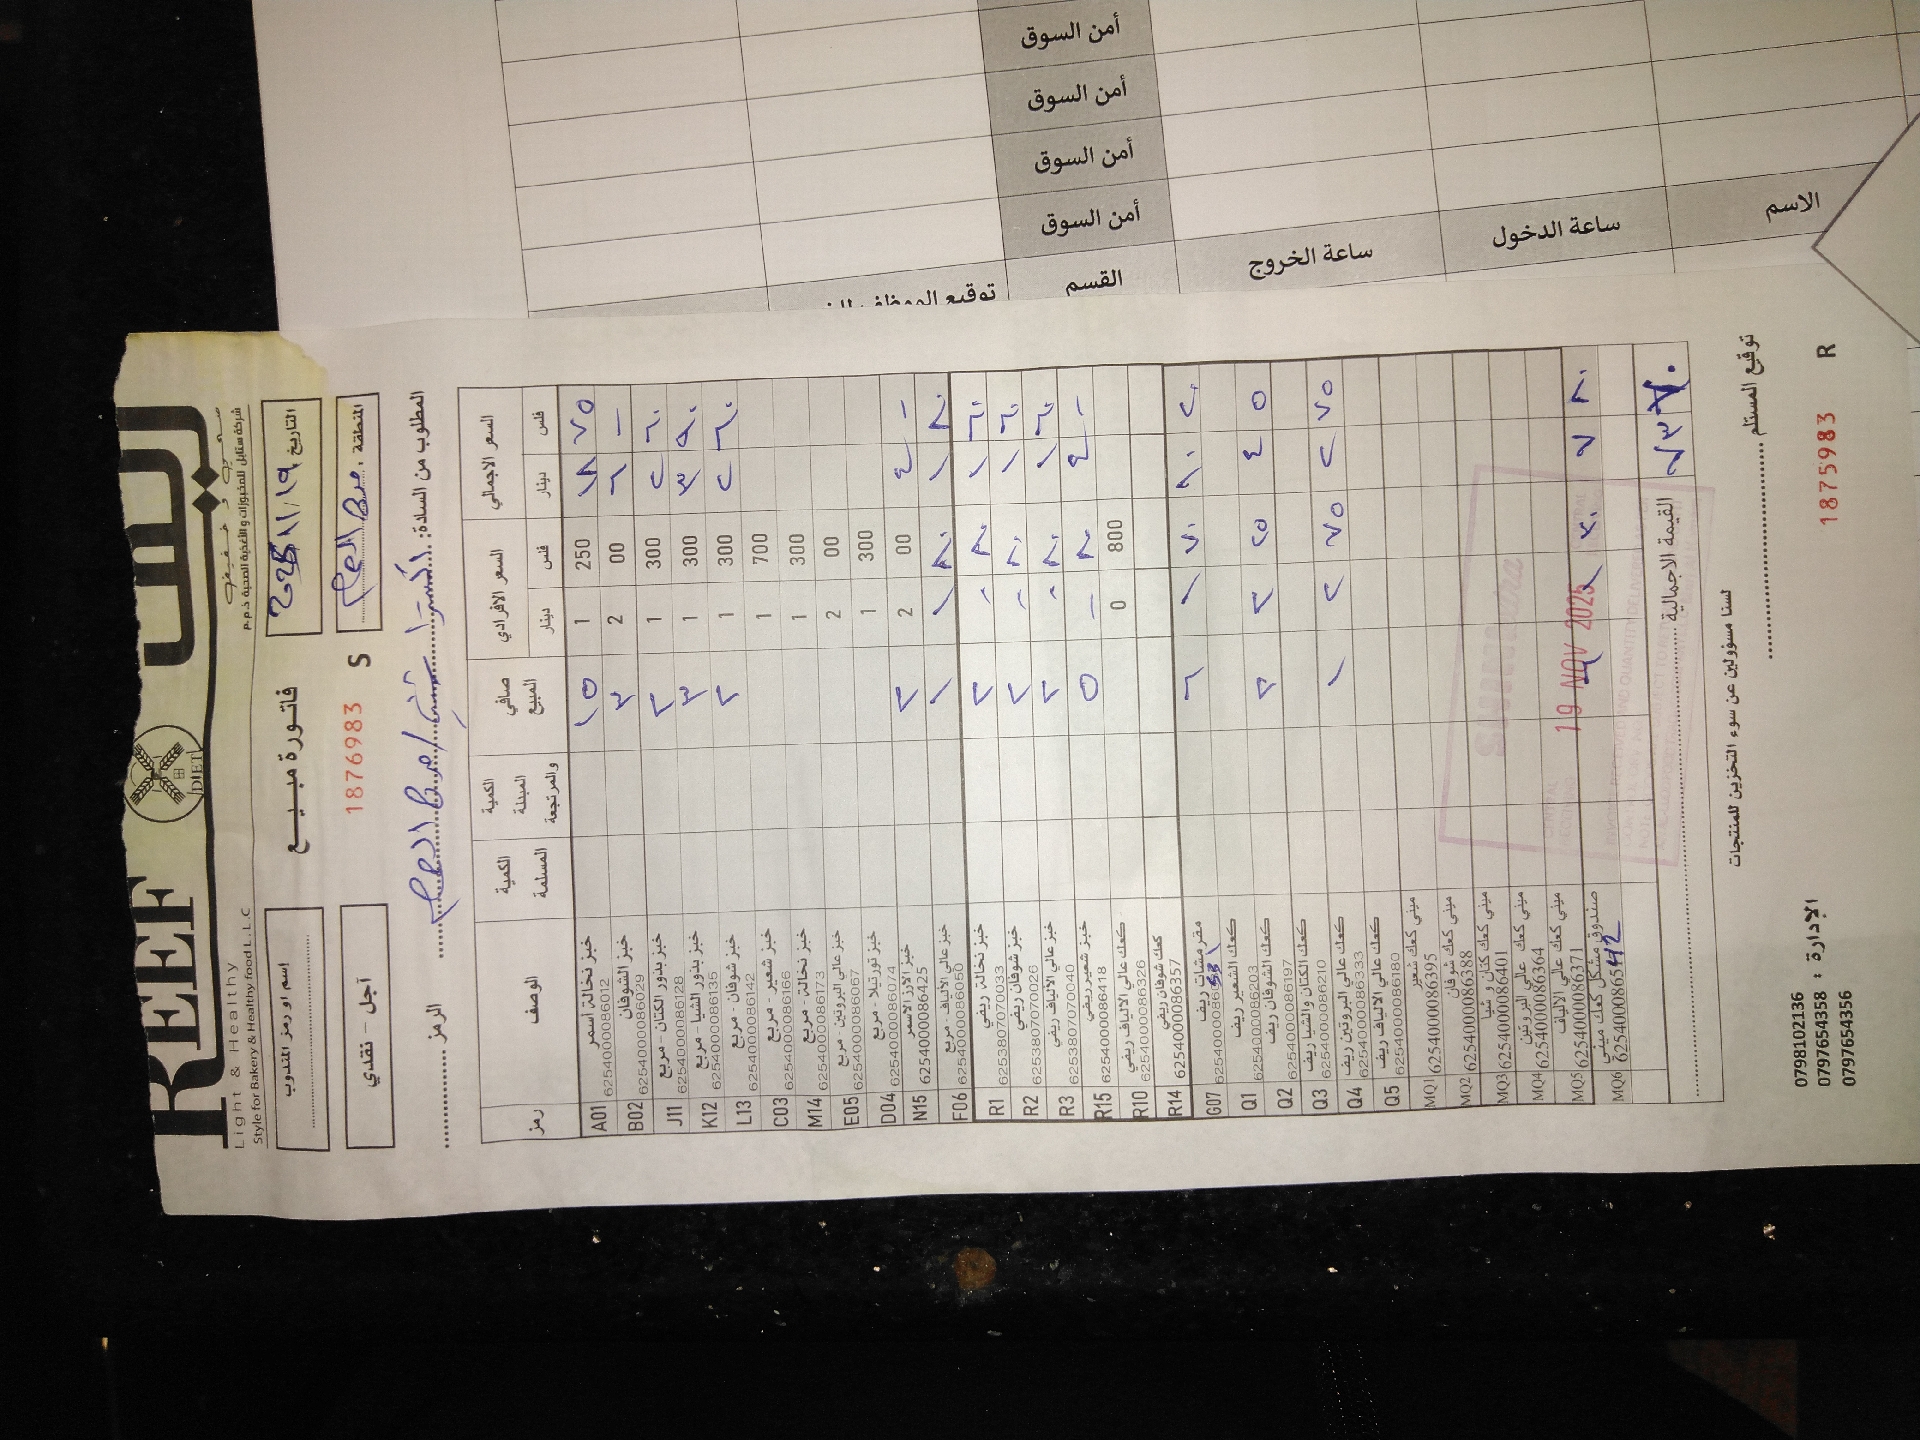 REEF
Light & Healthy
Style for Bakery & Healthy food L.L.C
DIET
ريف
صحية و خفيفة
شركة ستايل للمخبوزات والأغذية الصحية ذ.م.م
اسم او رمز المندوب
فاتورة مبيع
التاريخ
آجل - نقدي
1876983 S
المنطقة
الرمز
المطلوب من السادة:
رمز الوصف الكمية المسلمة الكمية المبدلة والمرتجعة صافي المبيع السعر الافرادي السعر الاجمالي
دينار فلس دينار فلس
A01 خبز نخالة أسمر 6254000086012 ١٥ 1 250 ١٨ ٧٥
B02 خبز الشوفان 6254000086029 ٣ 2 00 ٦ -
J11 خبز بذور الكتان - مربع 6254000086128 ٢ 1 300 ٢ ٦٠
K12 خبز بذور الشيا - مربع 6254000086135 ٣ 1 300 ٣ ٩٠
L13 خبز شوفان - مربع 6254000086142 ٢ 1 300 ٢ ٦٠
C03 خبز شعير - مربع 6254000086166 1 700
M14 خبز نخالة - مربع 6254000086173 1 300
E05 خبز عالي البروتين - مربع 6254000086067 2 00
D04 خبز تورتيلا - مربع 6254000086074 1 300
N15 خبز الأرز الأسمر 6254000086425 ٢ 2 00 ٤ -
F06 خبز عالي الألياف - مربع 6254000086050 ١ ١ ٨٠ ١ ٨٠
R1 خبز نخالة ريفي 6253807070033 ٢ ٨٠ ١ ٦٠
R2 خبز شوفان ريفي 6253807070026 ٢ ٨٠ ١ ٦٠
R3 خبز عالي الألياف ريفي 6253807070040 ٢ ٨٠ ١ ٦٠
R15 خبز شعير ريفي 6254000086418 ٥ - ٨٠ ٤ -
R10 كعك عالي الالياف ريفي 6254000086326 0 800
R14 كعك شوفان ريفي 6254000086357
G07 مقرمشات ريف ٦ ١ ٧٠ ١٠ ٢٠
Q1 كعك الشعير ريف 6254000086203
Q2 كعك الشوفان ريف 6254000086197 ٢ ٢ ٢٥ ٤ ٥٠
Q3 كعك الكتان والشيا ريف 6254000086210
Q4 كعك عالي البروتين ريف 6254000086333 ١ ٢ ٧٥ ٢ ٧٥
Q5 كعك عالي الالياف ريف 6254000086180
MQ1 ميني كعك شعير 6254000086395
MQ2 ميني كعك شوفان 6254000086388
MQ3 ميني كعك كتان و شيا 6254000086401
MQ4 ميني كعك عالي البروتين 6254000086364
MQ5 ميني كعك عالي الالياف 6254000086371
MQ6 صندوق مشكل كعك ميني
القيمة الاجمالية
19 NOV 2025
لسنا مسؤولين عن سوء التخزين للمنتجات
توقيع المستلم
الإدارة :
0798102136
0797654358
0797654356
1875983 R
أمن السوق
أمن السوق
أمن السوق
أمن السوق
القسم
ساعة الخروج
ساعة الدخول
الاسم